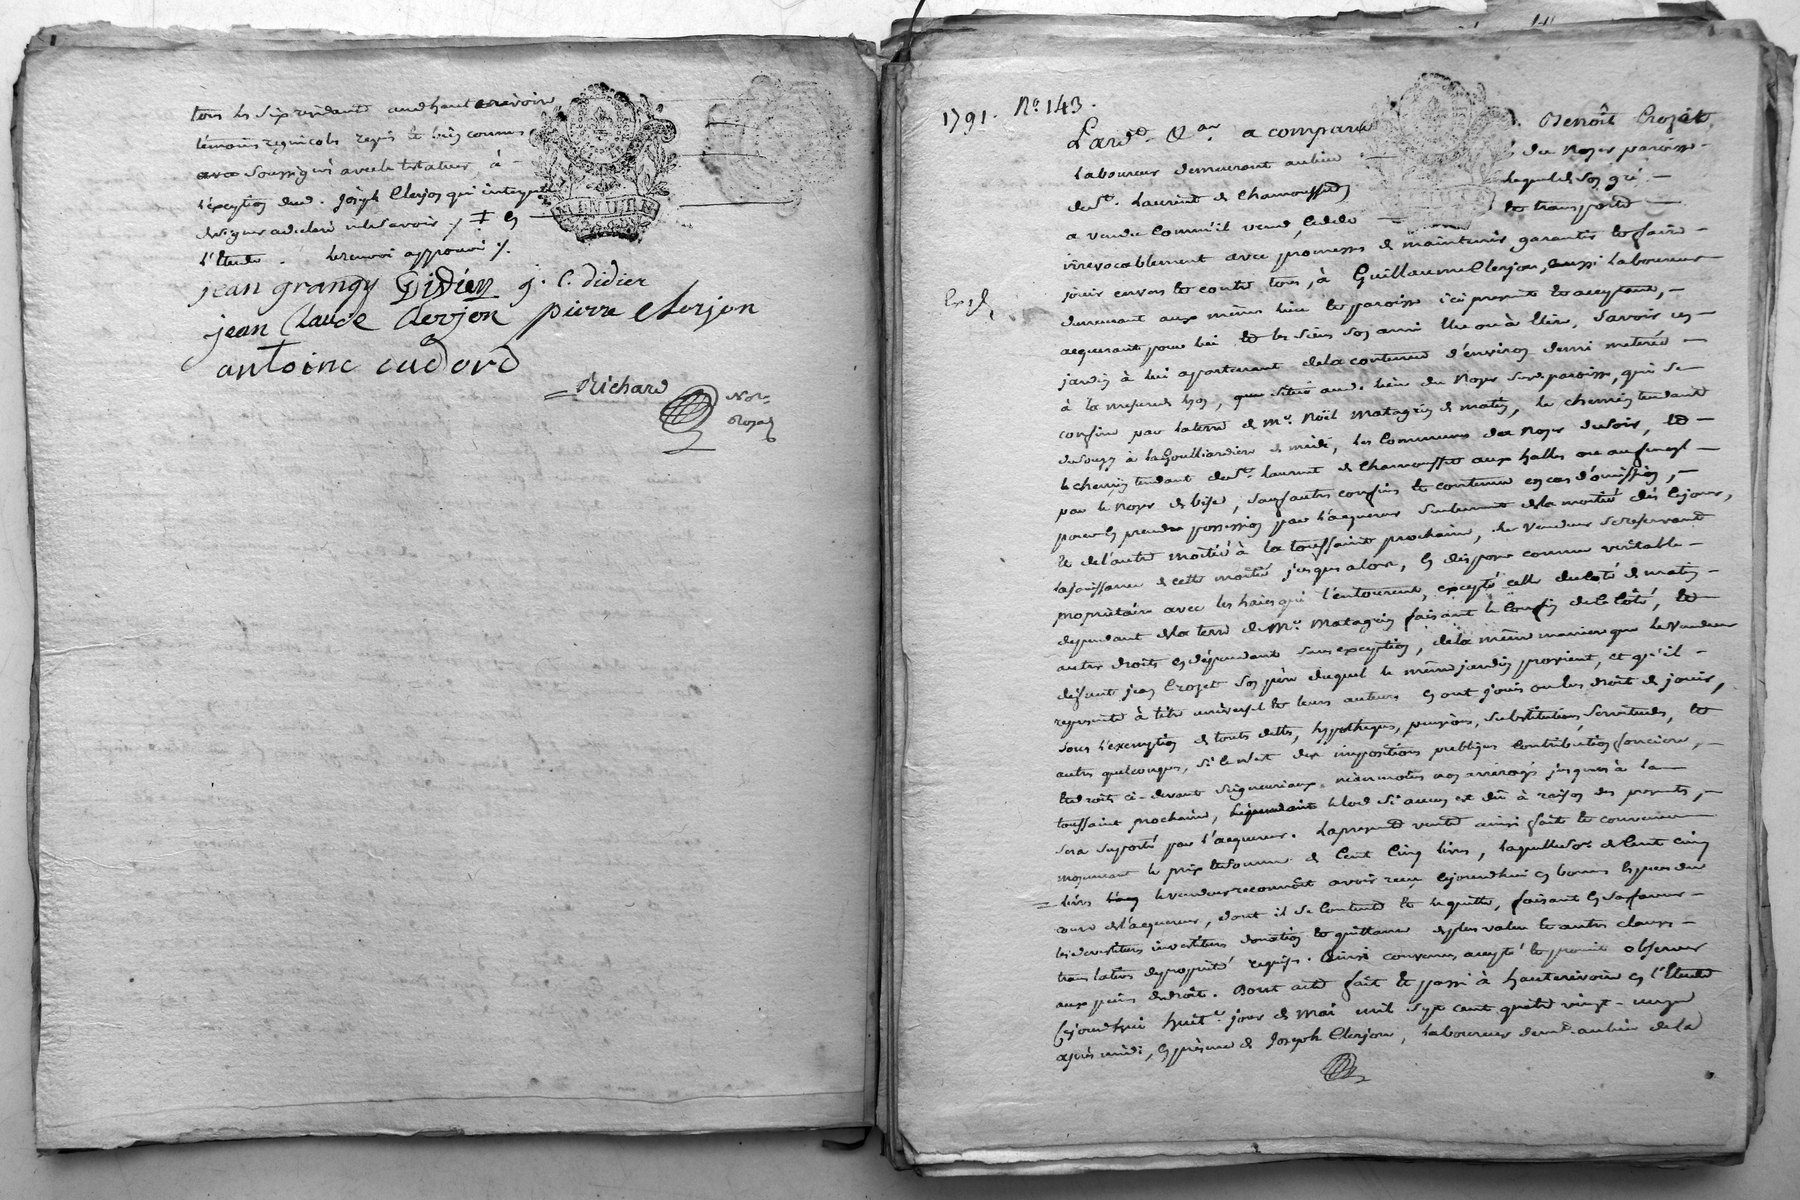 tous les six residants aud. hauterivoire
témoins requis et bien connus
avec soussignés avec le testateur, à
l'exception dud. Joseph Clerjon qui interpellé
de signer a déclaré ne le savoir ./. en
l'Etude. le renvoi approuvé ./.
jean grangy Gidien j. C. didier
jean Claude Clerjon pierre Clerjon
antoine cudord
Richard
Not.
Royal
1791. No. 143.
Pard. a comparu Benoît Crozet
Laboureur demeurant au lieu du Noyer paroisse
de St. Laurent de Chamousset lequel de son gré
a vendu comme il vend, cede et transporte
irrevocablement avec promesse de maintenir, garantir et faire
jouir envers et contre tous, à Guillaume Clerjon, aussi Laboureur
Exp.
demeurant aux mêmes lieu et paroisse ici present et acceptant,
acquerant pour lui et les siens son ami élu ou à élire, savoir un
jardin à lui apartenant de la contenue d'environ demi meterée
à la mesure de Lyon, situé aud. lieu du Noyer susd. paroisse, qui se
confine par la terre de Mr. Noël Matagrin de matin, le chemin tendant
de Souzy à la Goulliardiere de midi, les Communes du Noyer du soir, et
le chemin tendant de St. Laurent de Chamousset aux halles
par le Noyer de bise, sauf autres confins et contenue en cas d'omission,
pour en prendre possession par l'acquereur seulement de la moitié dès ce jour,
et de l'autre moitié à la toussaint prochaine, le vendeur se reservant
la jouissance de cette moitié jusques alors, en disposer comme veritable
propriétaire avec les haies qui l'entourent, excepté celle du coté de matin
dependant de la terre de Mr. Matagrin faisant le Confin de ce Côté, et
autres droits en dépendant sans exception, de la même maniere que le Vendeur
défunt jean Crozet son père duquel le même jardin provient, et qu'il
represente à titre universel et leurs auteurs en ont joui ou eu droit de jouir,
sous l'exemption de toutes dettes, hypotheques, pensions, substitutions, servitudes, et
autres quelconques, si ce n'est des impositions publiques contribution fonciere,
et droits ci-devant seigneuriaux, neanmoins non arreragés jusques à la
toussaint prochaine, le lod si aucun est dû à raison des presentes,
sera suporté par l'acquereur. La presente vente ainsi faite et convenue
moyennant le prix et somme de Cent Cinq livres, laquelle so. de Cent Cinq
livres le vendeur reconnoît avoir reçu cejourdhui en bonnes especes du
cours de l'acquereur, dont il se Contente et le quitte, faisant en sa faveur
les devestitures investitures donation et quittance de plus value et autres clauses
translatives de proprieté requises. Ainsi convenu, accepté et promis observer
aux peines de droit. Dont acte fait et passé à hauterivoire en l'Etude
Cejourdhui huit. jour de Mai mil sept cent quatre vingt-onze
après midi, en présence de Joseph Clerjon, Laboureur demt. au lieu de la